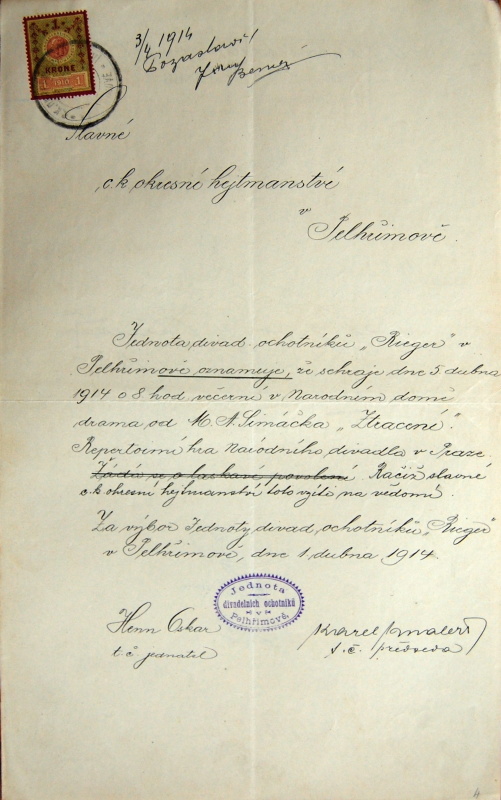 1
KRONE
3/4 1914
Slavné
c.k. okresní hejtmanství
v
Pelhřimově.
Jednota divad. ochotníků „Rieger" v
Pelhřimově oznamuje, že sehraje dne 5 dubna
1914 o 8 hod večerní v Národním domě
drama od M. A. Šimáčka „Ztracení".
Repertoirní hra Národního divadla v Praze.
Žádá se o laskavé povolení. Račiž slavné
c.k. okresní hejtmanství toto vzíti na vědomí.
Za výbor Jednoty divad. ochotníků „Rieger"
v Pelhřimově, dne 1 dubna 1914.
Jednota
divadelních ochotníků
v
Pelhřimově.
Henn Oskar
t. č. jednatel
Karel
t. č. předseda
4